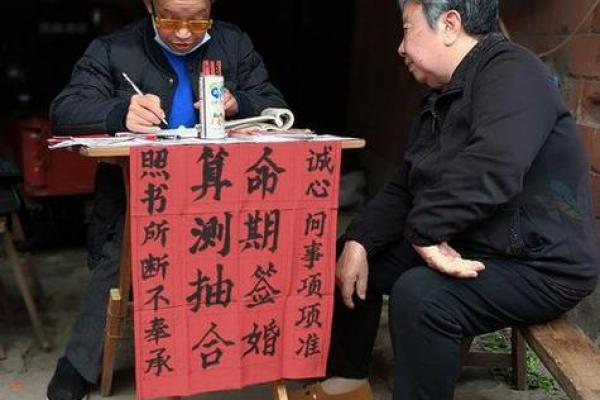 诚心问事项项准
算命
测期
抽签
合婚
照书所断不奉承